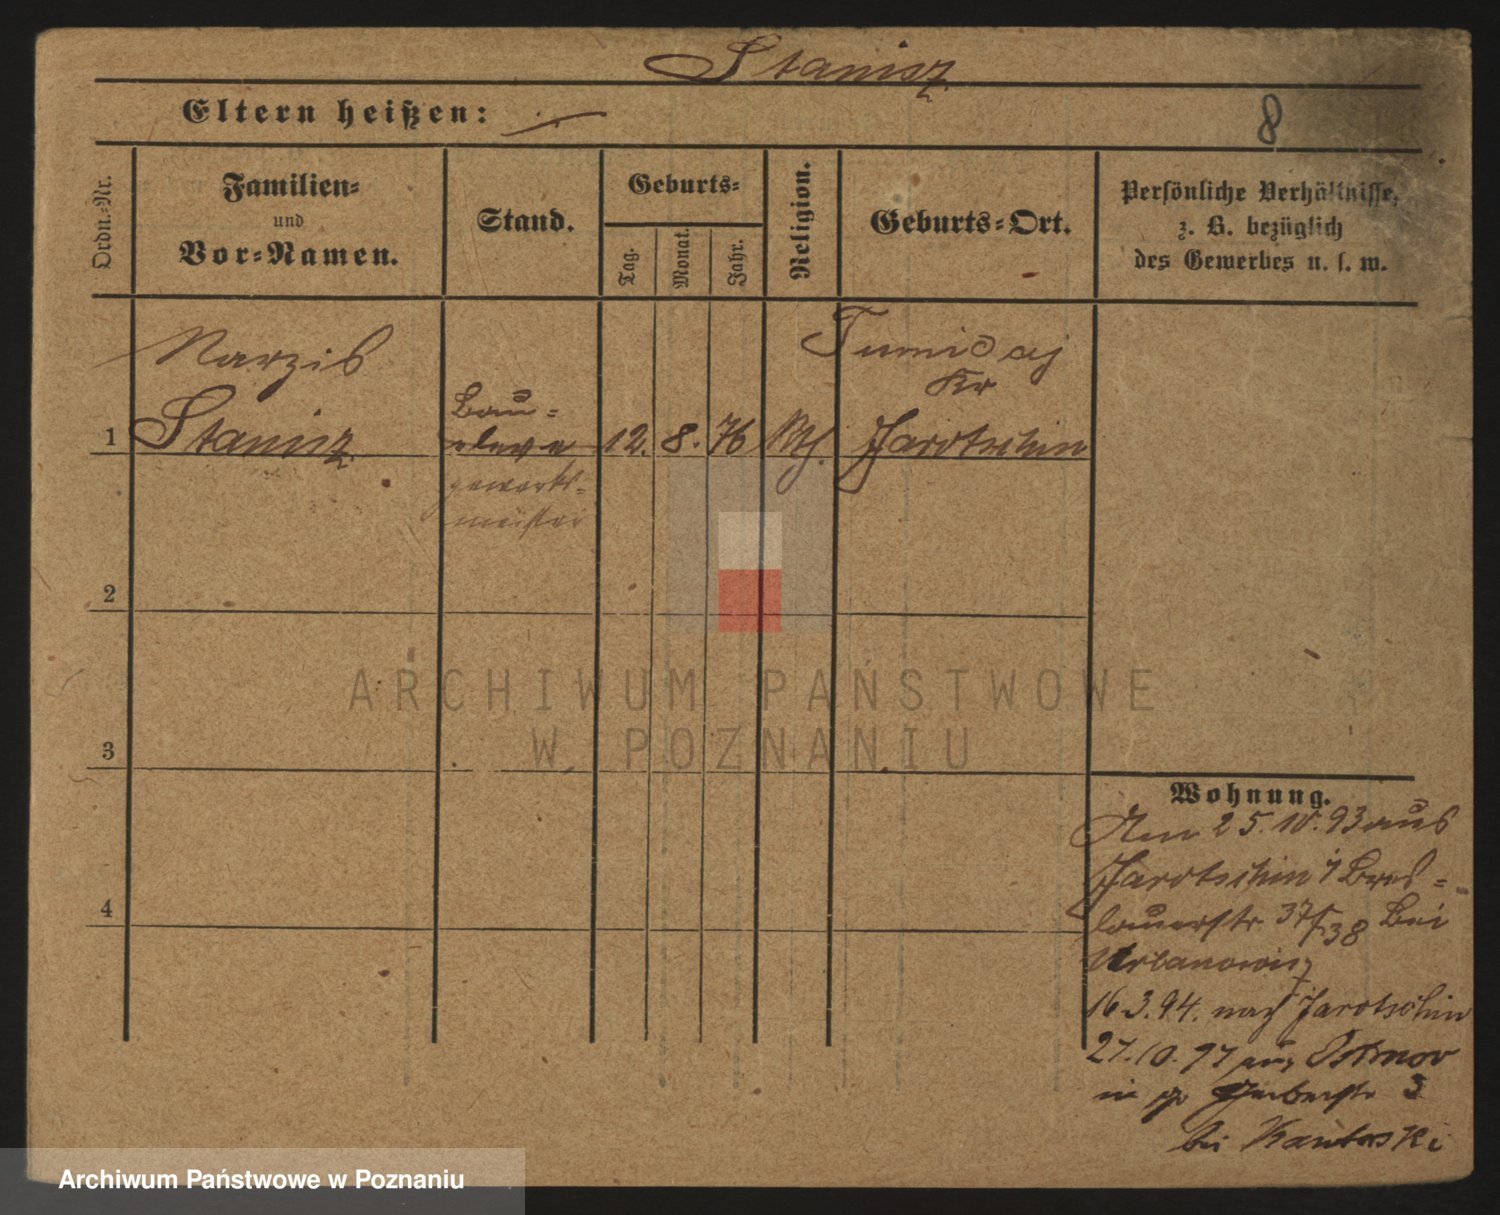 Stanisz
Eltern heißen:
8
Ordn.-Nr.
Familien-
und
Vor-Namen.
Stand.
Geburts-
Tag.
Monat.
Jahr.
Religion.
Geburts-Ort.
Persönliche Verhältnisse,
z. B. bezüglich
des Gewerbes u. s. w.
Narzis
Stanisz
Bau-
eleve
gewerks-
meister
1
12. 8. 76
Kth.
Tumidaj
Kr
Jarotschin
2
3
4
Wohnung.
25. 10. 93 aus
Jarotschin Bres-
lauerstr 37/38 bei
Urbanowicz
16.3.94. nach Jarotschin
27.10.97 aus
in Gerberstr 3
bei Kantorski
ARCHIWUM PAŃSTWOWE
W POZNANIU
Archiwum Państwowe w Poznaniu